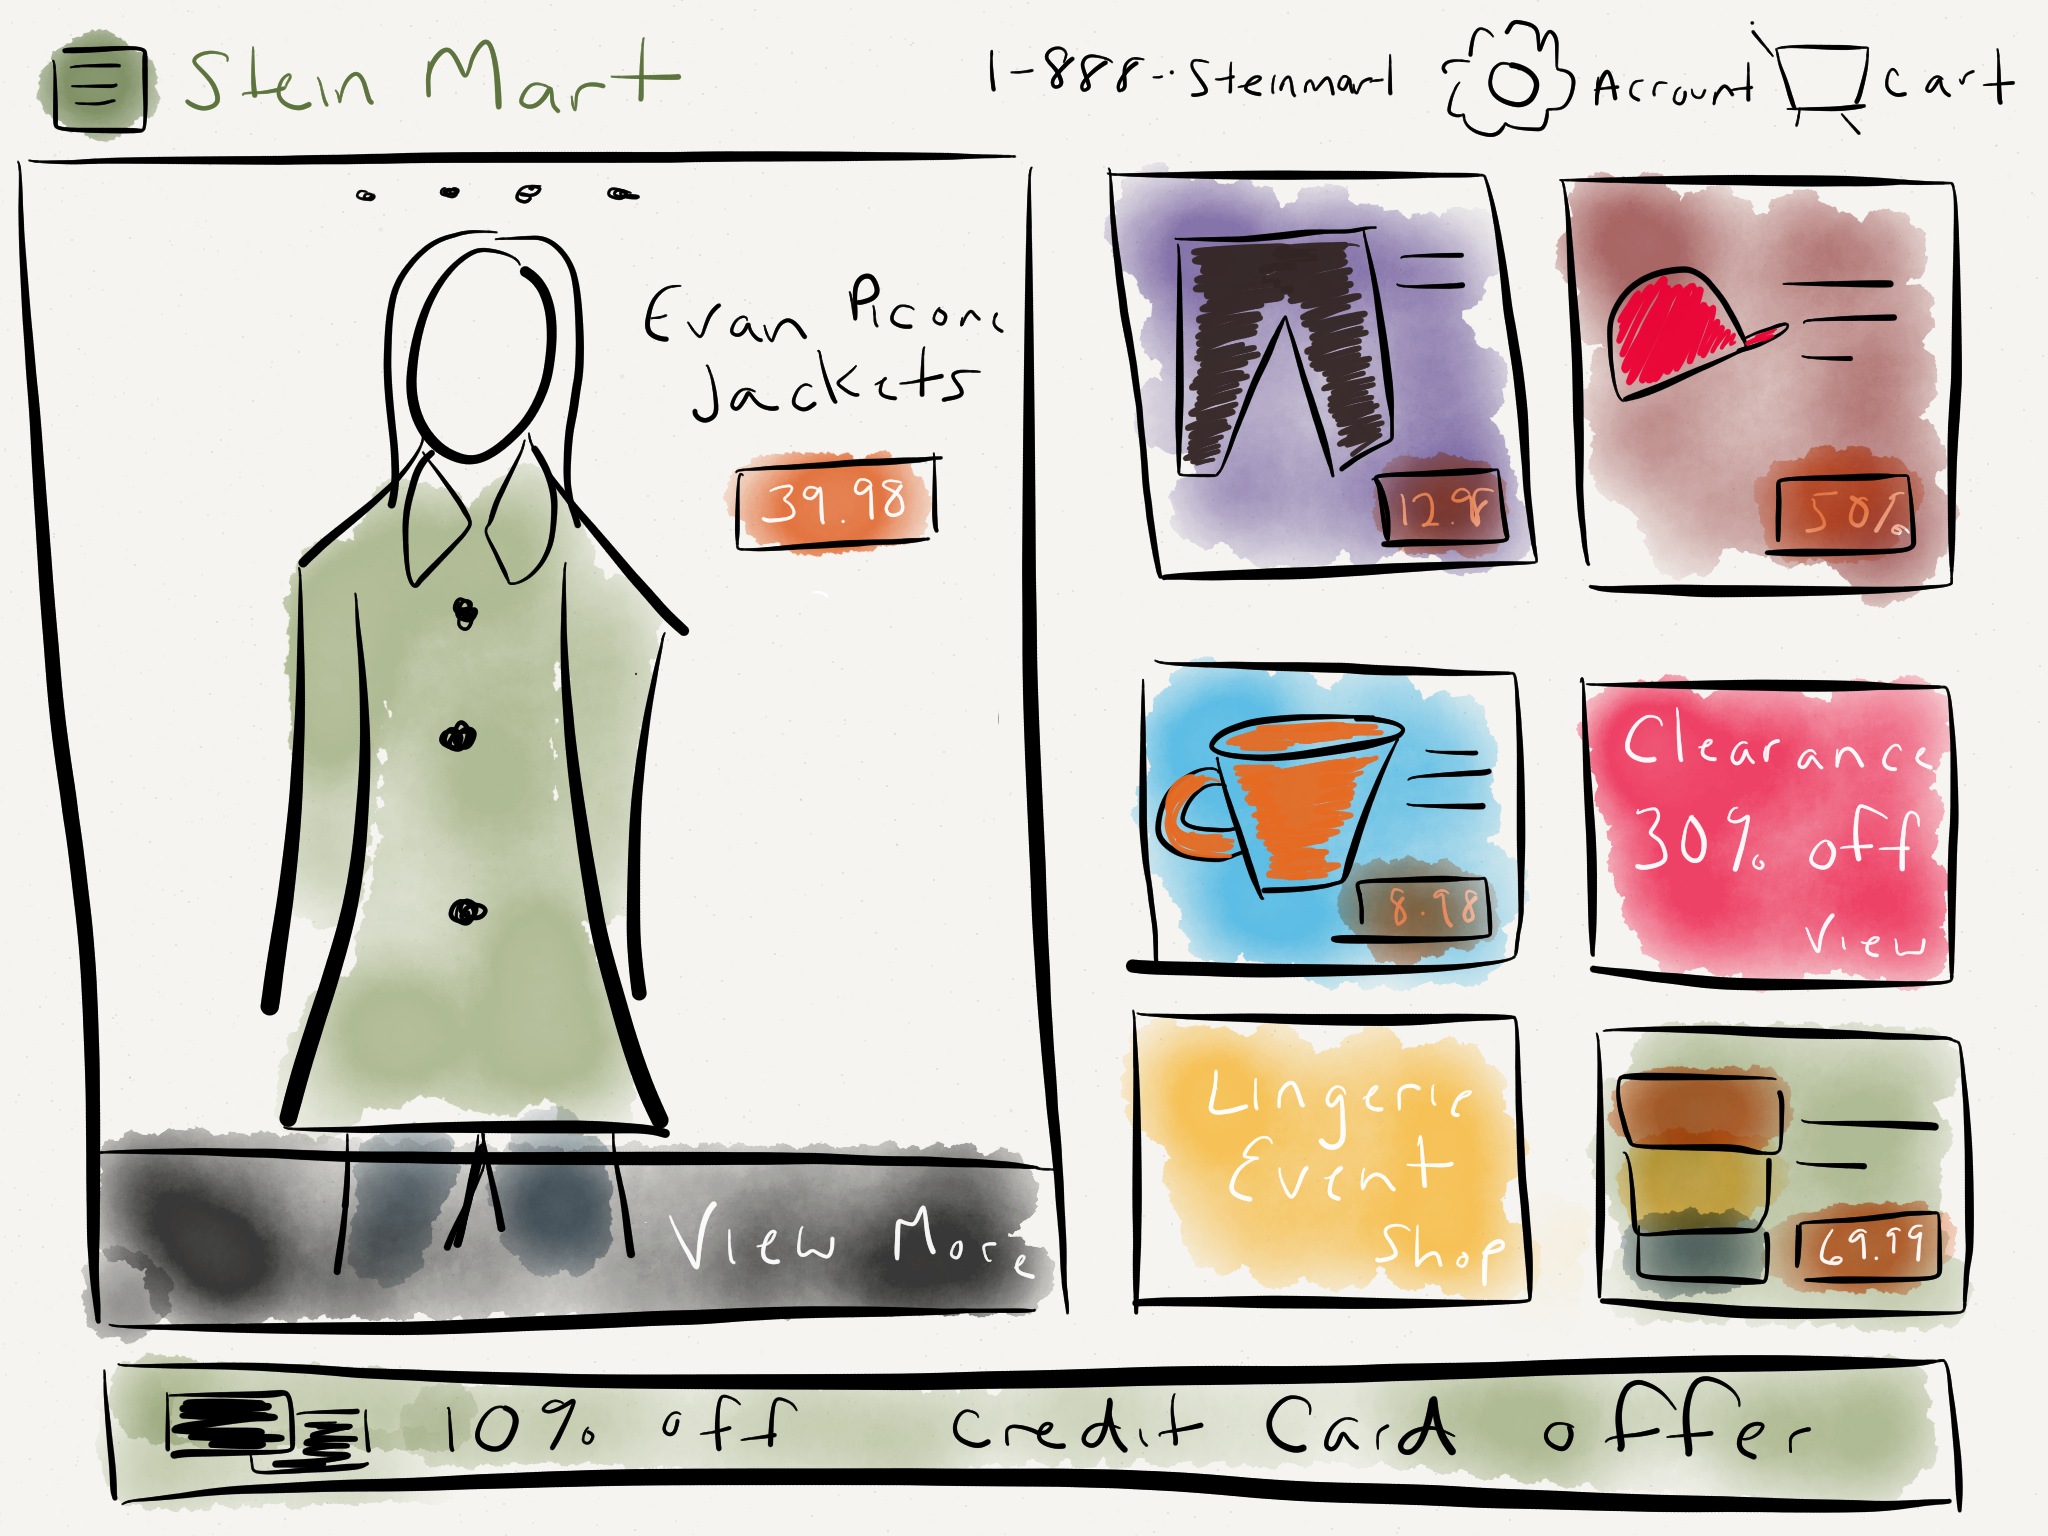 Stein Mart
1-888-Steinmart
Account
Cart
Evan Picone
Jackets
39.98
View More
12.98
50%
8.98
Clearance
30% off
View
Lingerie
Event
Shop
69.99
10% off Credit Card offer